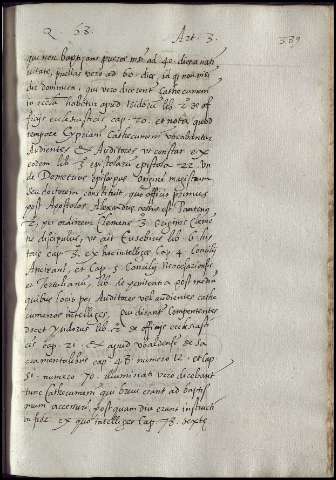 Q. 68. Art. 3. 389
qui non baptizant pueros nisi ad 40. diem a nati
uitate, puellas vero ad 80. diem, id qd non nisi
die dominica. qui vero dicerent Cathecumeni
in ecclesia habetur apud Isidorum lib. 2. de of
ficijs ecclesiasticis cap. 20. et nota quod
tempore Cypriani Cathecumeni vocabantur
Audientes et Auditores ut constat ex
eodem lib. 3. epistolarum epistola 22. Un
de Demetrius episcopus Origini magistrum
seu doctorem constituit, quo officio primus
post Apostolos Alexandriae Panteno
2. per ordinem Clemens 3. Origines Cleme
tis discipulus, ut ait Eusebius lib. 6. his
toriae cap. 3. ex hac intelliges cap. 4. Concilij
Ancirani, et Cap. 5. Concilij Neocesariensis
et Tertulianum, lib. de penitentia post medium
quibus locis per Auditores vel audientes cathe
cumenos intelliges, qui dicantur Competentes
docet Ysidorus lib. 2. de officijs ecclesias
cis cap. 21. et apud Ubaldense de sa
cramentalibus cap. 48. numero 12. et cap.
51. numero 70. illuminati vero dicebant
tunc Cathecumeni qui brevi erant ad baptis
mum accessuri, postquam diu erant instructi
in fide ex quo intelliges Cap. 78. sextae